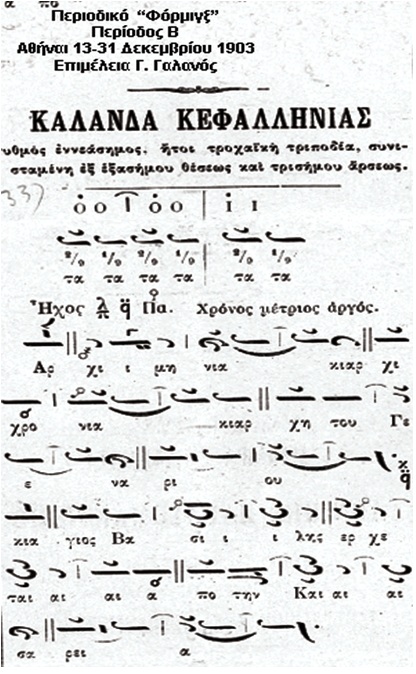 α πο
Περιοδικό "Φόρμιγξ"
Περίοδος Β
Αθήναι 13-31 Δεκεμβρίου 1903
Επιμέλεια Γ. Γαλανός
ΚΑΛΑΝΔΑ ΚΕΦΑΛΛΗΝΙΑΣ
υθμός ἐννεάσημος, ἤτοι τροχαϊκὴ τριποδία, συνι-
σταμένη ἐξ ἑξασήμου θέσεως καὶ τρισήμου ἄρσεως.
337
ὁ ο ὁ ο ἱ ι
2/9 1/9 2/9 1/9 2/9 1/9
τα τα τα τα τα τα
Ἦχος λ π q Πα. Χρόνος μέτριος ἀργός.
Αρ χι ι μη νια κιαρ χι
χρο νια κιαρ χη του Γε
ε να ρι ου
κια γιος Βα σι ι λης ερ χε
ται αι αι α πο την Και αι αι
σα ρει α